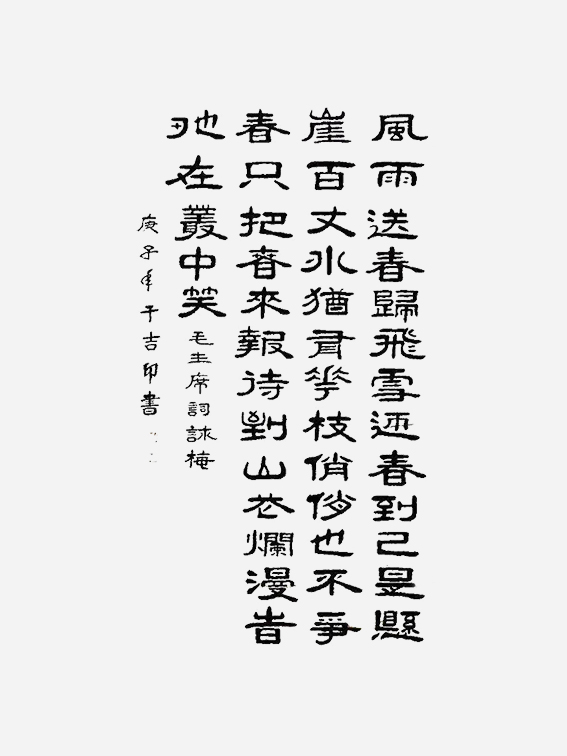 風雨送春歸飛雪迎春到已是懸
崖百丈冰猶有花枝俏俏也不爭
春只把春來報待到山花爛漫旹
她在叢中笑 毛主席詞詠梅
庚子年于吉印書